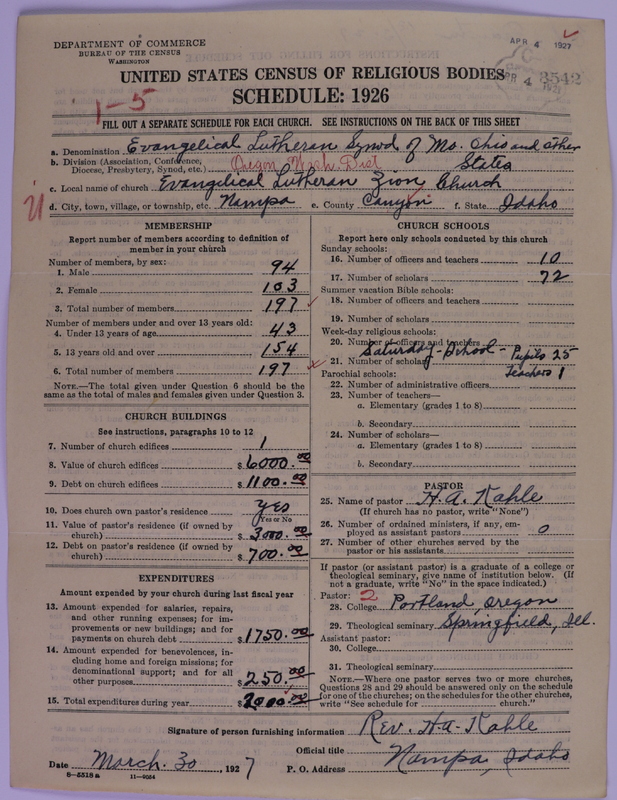 DEPARTMENT OF COMMERCE
BUREAU OF THE CENSUS
WASHINGTON
APR 4 1927
UNITED STATES CENSUS OF RELIGIOUS BODIES
APR 4 3542
1927
SCHEDULE: 1926
1-5
FILL OUT A SEPARATE SCHEDULE FOR EACH CHURCH. SEE INSTRUCTIONS ON THE BACK OF THIS SHEET
a. Denomination Evangelical Lutheran Synod of Mo. Ohio and other States
b. Division (Association, Conference, Diocese, Presbytery, Synod, etc.) Oregon Wash Dist
c. Local name of church Evangelical Lutheran Zion Church
d. City, town, village, or township, etc. Nampa e. County Canyon f. State Idaho
MEMBERSHIP
Report number of members according to definition of
member in your church
Number of members, by sex:
1. Male 94
2. Female 103
3. Total number of members 197
Number of members under and over 13 years old:
4. Under 13 years of age 43
5. 13 years old and over 154
6. Total number of members 197
NOTE.—The total given under Question 6 should be the
same as the total of males and females given under Question 3.
CHURCH BUILDINGS
See instructions, paragraphs 10 to 12
7. Number of church edifices 1
8. Value of church edifices $ 6000.00
9. Debt on church edifices $ 1100.00
10. Does church own pastor's residence yes
Yes or No
11. Value of pastor's residence (if owned by
church) $ 3000.00
12. Debt on pastor's residence (if owned by
church) $ 700.00
EXPENDITURES
Amount expended by your church during last fiscal year
13. Amount expended for salaries, repairs,
and other running expenses; for im-
provements or new buildings; and for
payments on church debt $ 1750.00
14. Amount expended for benevolences, in-
cluding home and foreign missions; for
denominational support; and for all
other purposes $ 250.00
15. Total expenditures during year $ 2000.00
CHURCH SCHOOLS
Report here only schools conducted by this church
Sunday schools:
16. Number of officers and teachers 10
17. Number of scholars 72
Summer vacation Bible schools:
18. Number of officers and teachers
19. Number of scholars
Week-day religious schools:
20. Number of officers and teachers
Saturday-School - Pupils 25
21. Number of scholars
Teachers 1
Parochial schools:
22. Number of administrative officers
23. Number of teachers—
a. Elementary (grades 1 to 8)
b. Secondary
24. Number of scholars—
a. Elementary (grades 1 to 8)
b. Secondary
PASTOR
25. Name of pastor H. A. Kahle
(If church has no pastor, write "None")
26. Number of ordained ministers, if any, em-
ployed as assistant pastors 0
27. Number of other churches served by the
pastor or his assistants
If pastor (or assistant pastor) is a graduate of a college or
theological seminary, give name of institution below. (If
not a graduate, write "No" in the space indicated.)
Pastor: 2
28. College Portland, Oregon
29. Theological seminary Springfield, Ill.
Assistant pastor:
30. College
31. Theological seminary
NOTE.—Where one pastor serves two or more churches,
Questions 28 and 29 should be answered only on the schedule
for one of the churches; on the schedules for the other churches,
write "See schedule for church."
Signature of person furnishing information Rev. H. A. Kahle
Official title
Date March 30, 1927 P. O. Address Nampa, Idaho
8-5518 a 11-9054